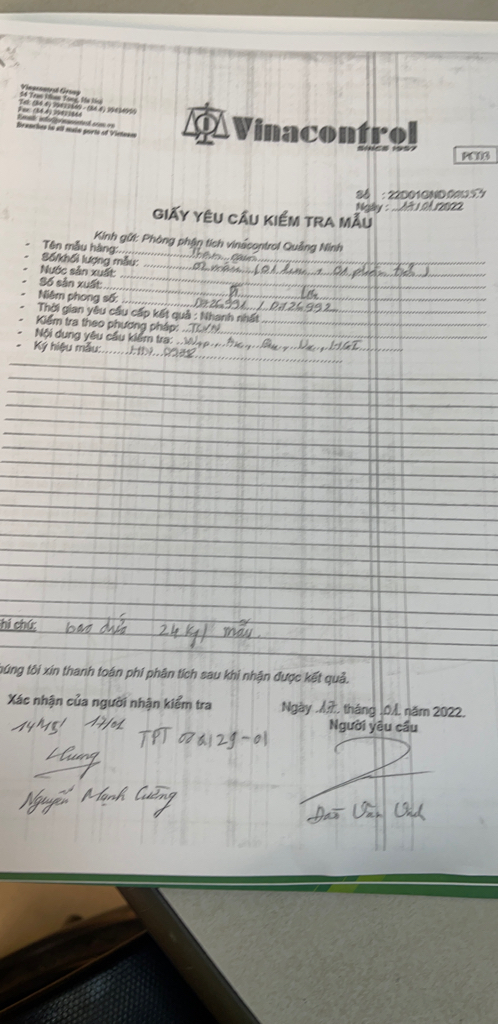 Vinacontrol Group
54 Tran Nhan Tong, Ha Noi
Branches in all main ports of Vietnam
Vinacontrol
SINCE 1957
Số : 22D01GND
Ngày : /01/2022
GIẤY YÊU CẦU KIỂM TRA MẪU
Kính gửi: Phòng phân tích vinacontrol Quảng Ninh
- Tên mẫu hàng: Than cám
- Số/khối lượng mẫu: 02 mẫu (01 lưu + 01 phân tích)
- Nước sản xuất:
- Số sản xuất:
- Niêm phong số: D026991 / D026992
- Thời gian yêu cầu cấp kết quả : Nhanh nhất
- Kiểm tra theo phương pháp: TCVN
- Nội dung yêu cầu kiểm tra:
- Ký hiệu mẫu:
hi chú: bao dứa 24 kg/ mẫu.
húng tôi xin thanh toán phí phân tích sau khi nhận được kết quả.
Xác nhận của người nhận kiểm tra
Ngày 17 tháng 01 năm 2022.
Người yêu cầu
14h15' 17/01
TPT 03.129-01
Nguyễn Mạnh Cường
Đào Văn